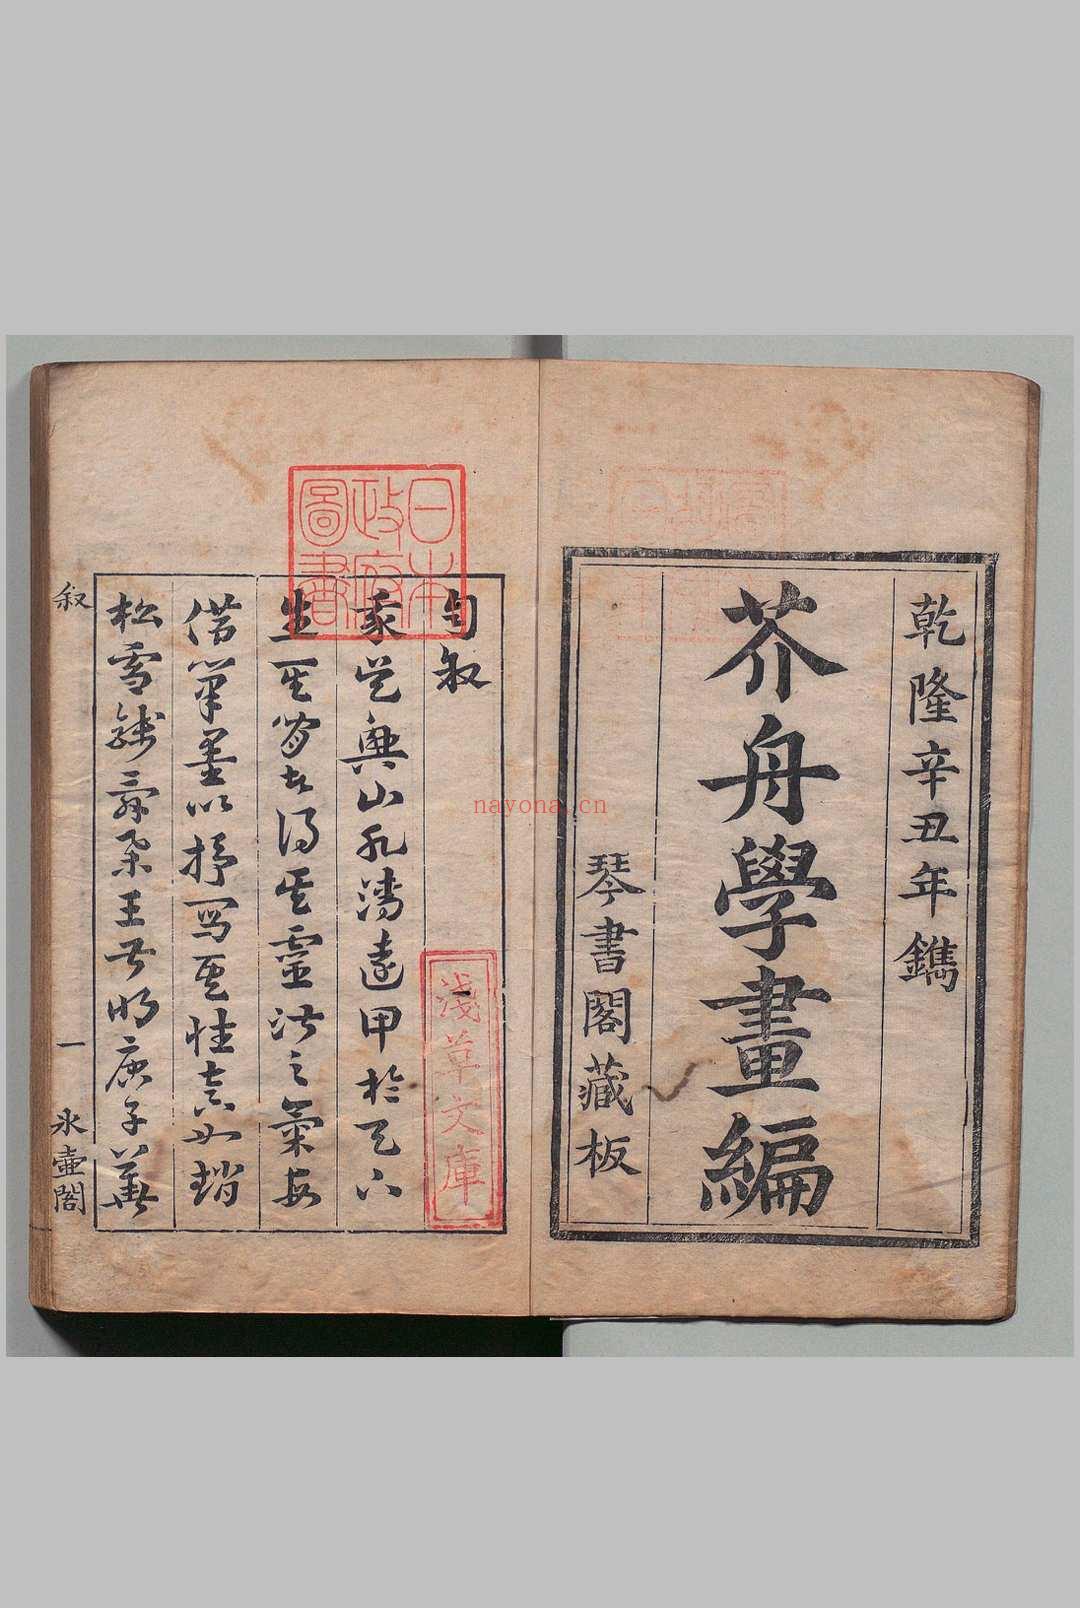 乾隆辛丑年鐫
芥舟學畫編
琴書閣藏板
日本
政府
圖書
自叙
淺草文庫
我吴興山水清遠甲於天下
生其間者得其靈淑之氣每
借筆墨以抒寫其性真如趙
松雪錢舜舉王叔明唐子華
叙
一
冰壺閣
nayona.cn